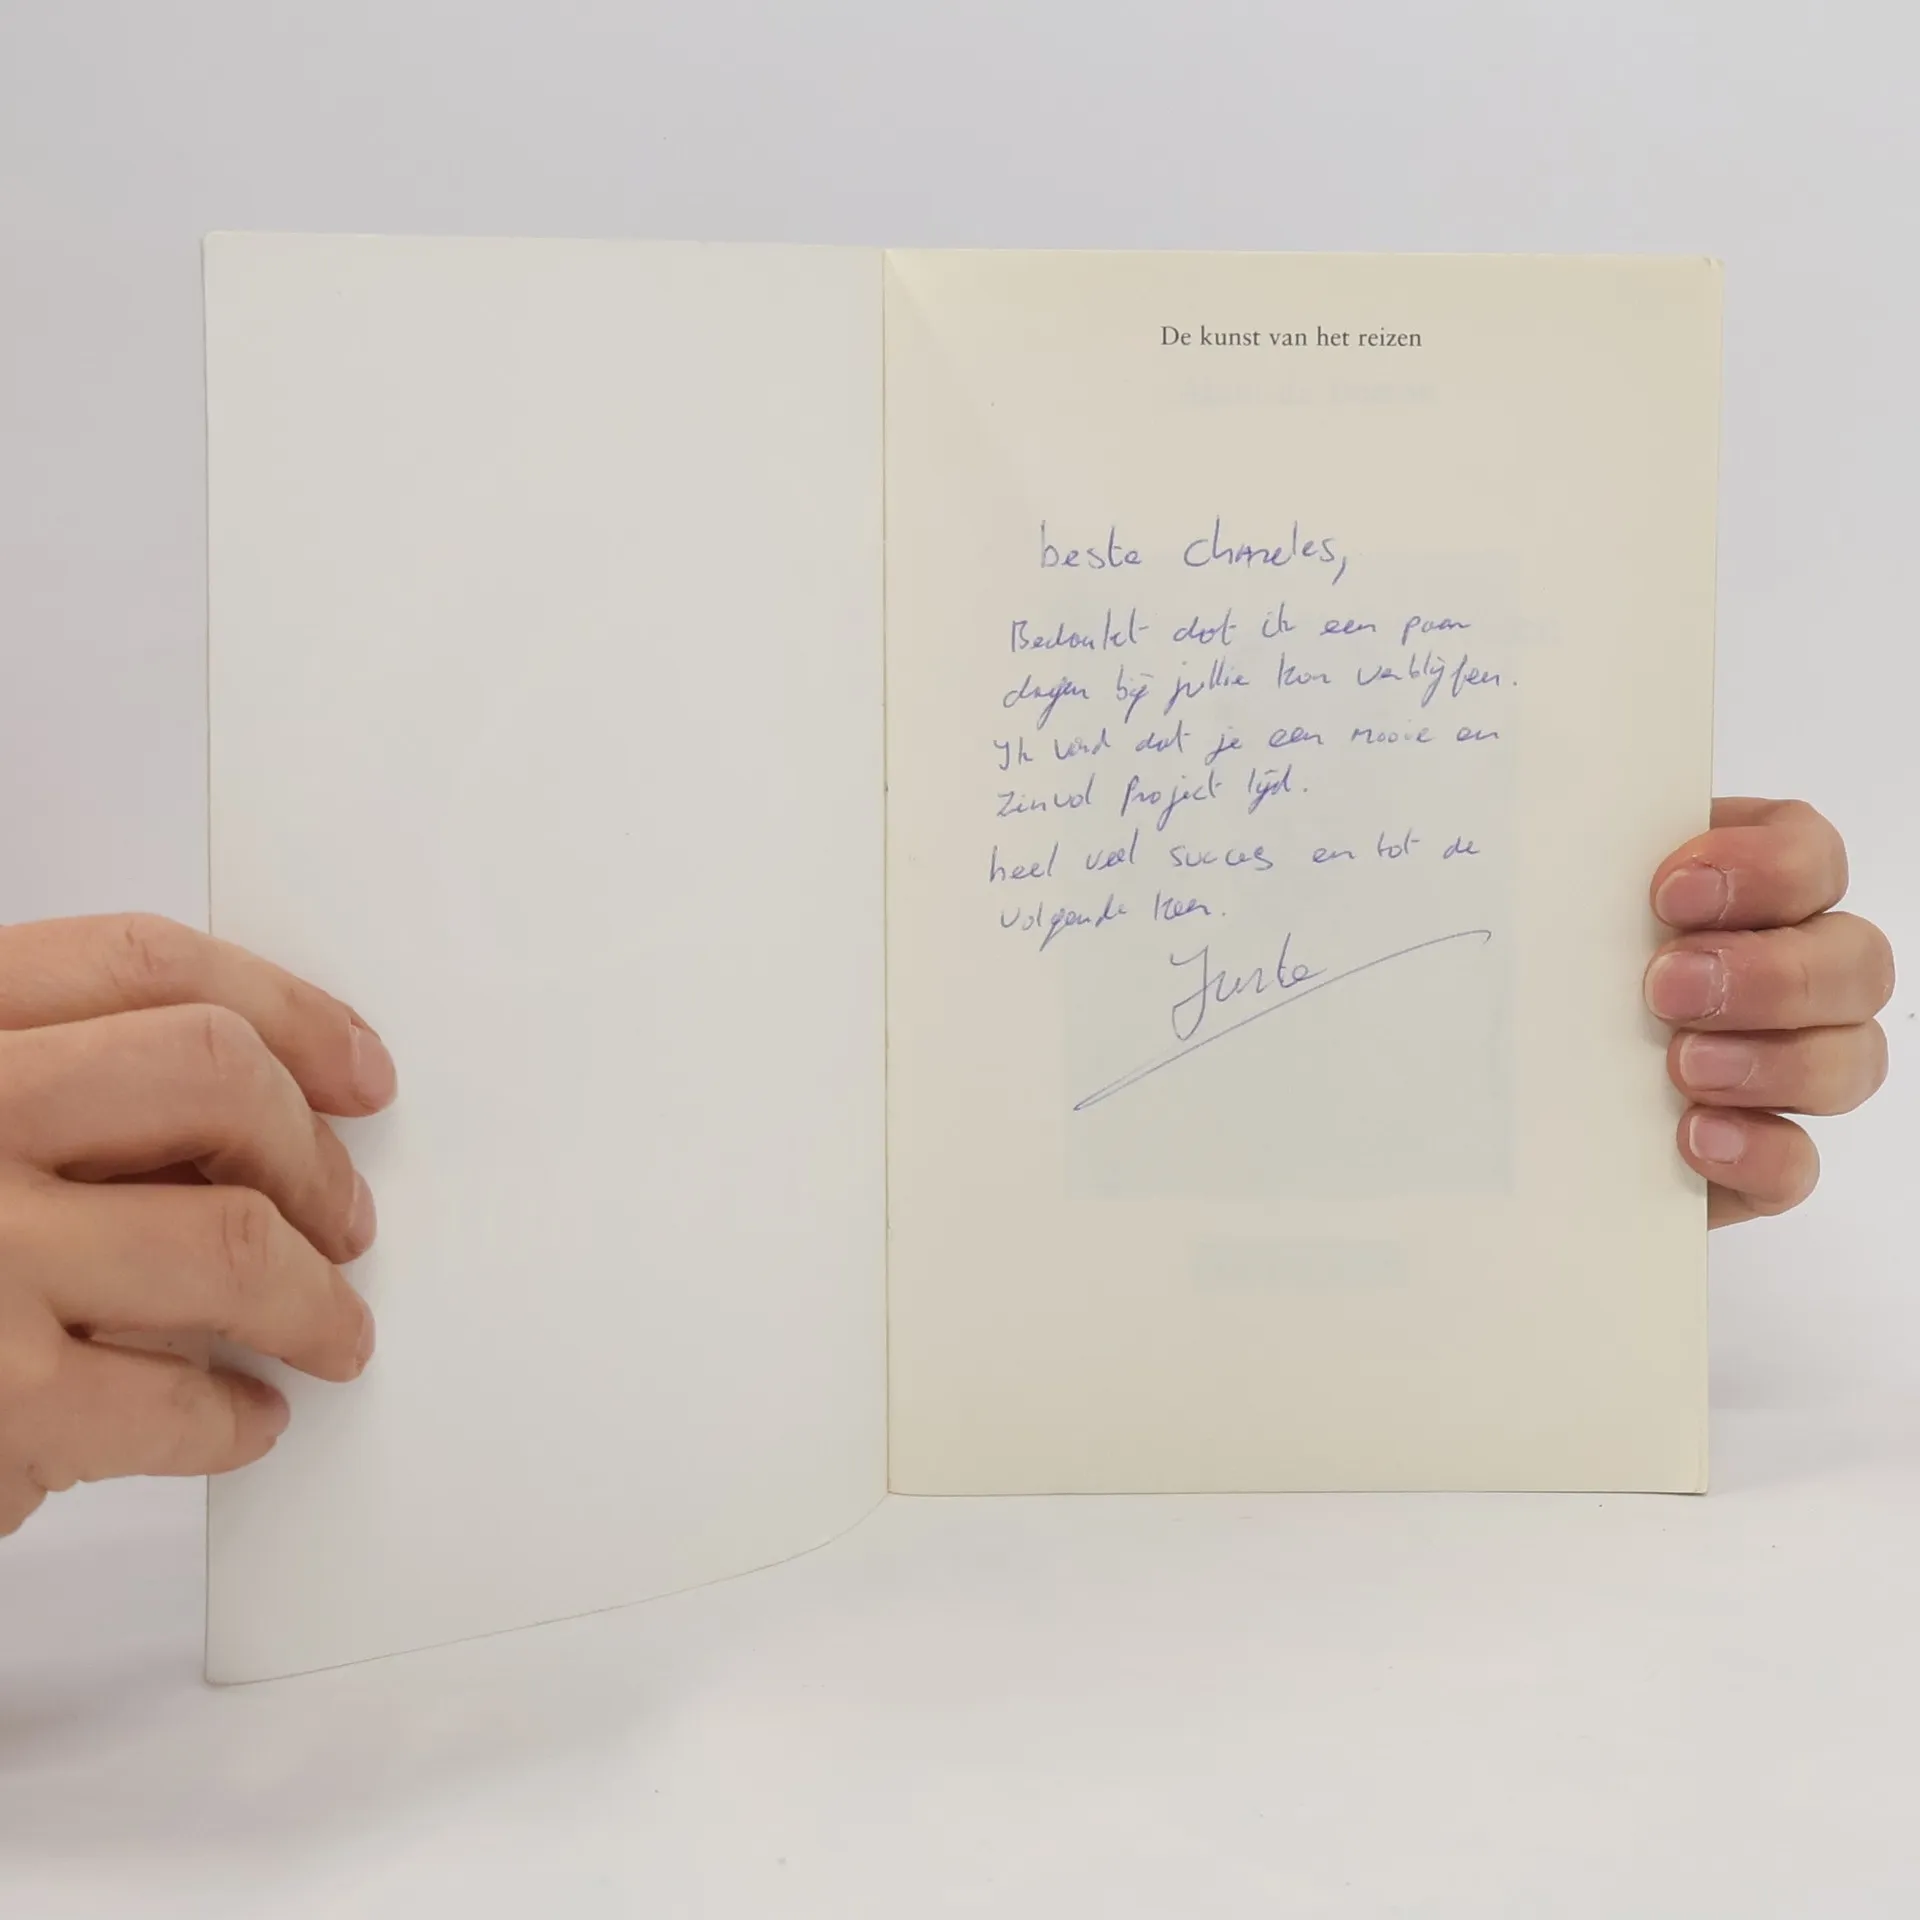 De kunst van het reizen
beste Charles,
Bedankt dat ik een paar
dagen bij jullie kon verblijfen.
Ik vind dat je een mooie en
zinvol project lijd.
heel veel succes en tot de
volgende keer.